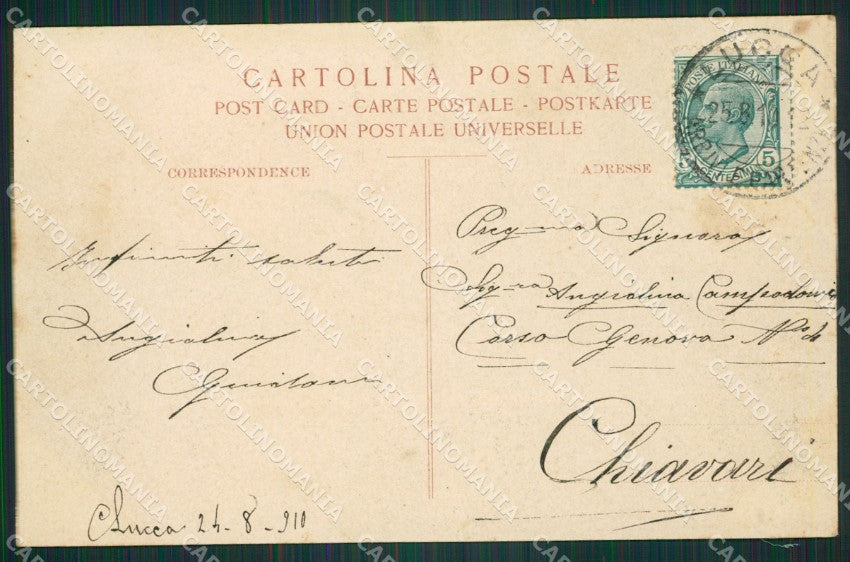 CARTOLINA POSTALE
POST CARD - CARTE POSTALE - POSTKARTE
UNION POSTALE UNIVERSELLE
CORRESPONDENCE
ADRESSE
POSTE ITALIANE
5 5
CENTESIMI
LUCCA
25.8.1
ARRIVI
Infiniti saluti
Angiolina
Preg-ma Signora
Sig-ra Angiolina Campodonico
Corso Genova No 4
Chiavari
Lucca 24-8-910
CARTOLINOMANIA